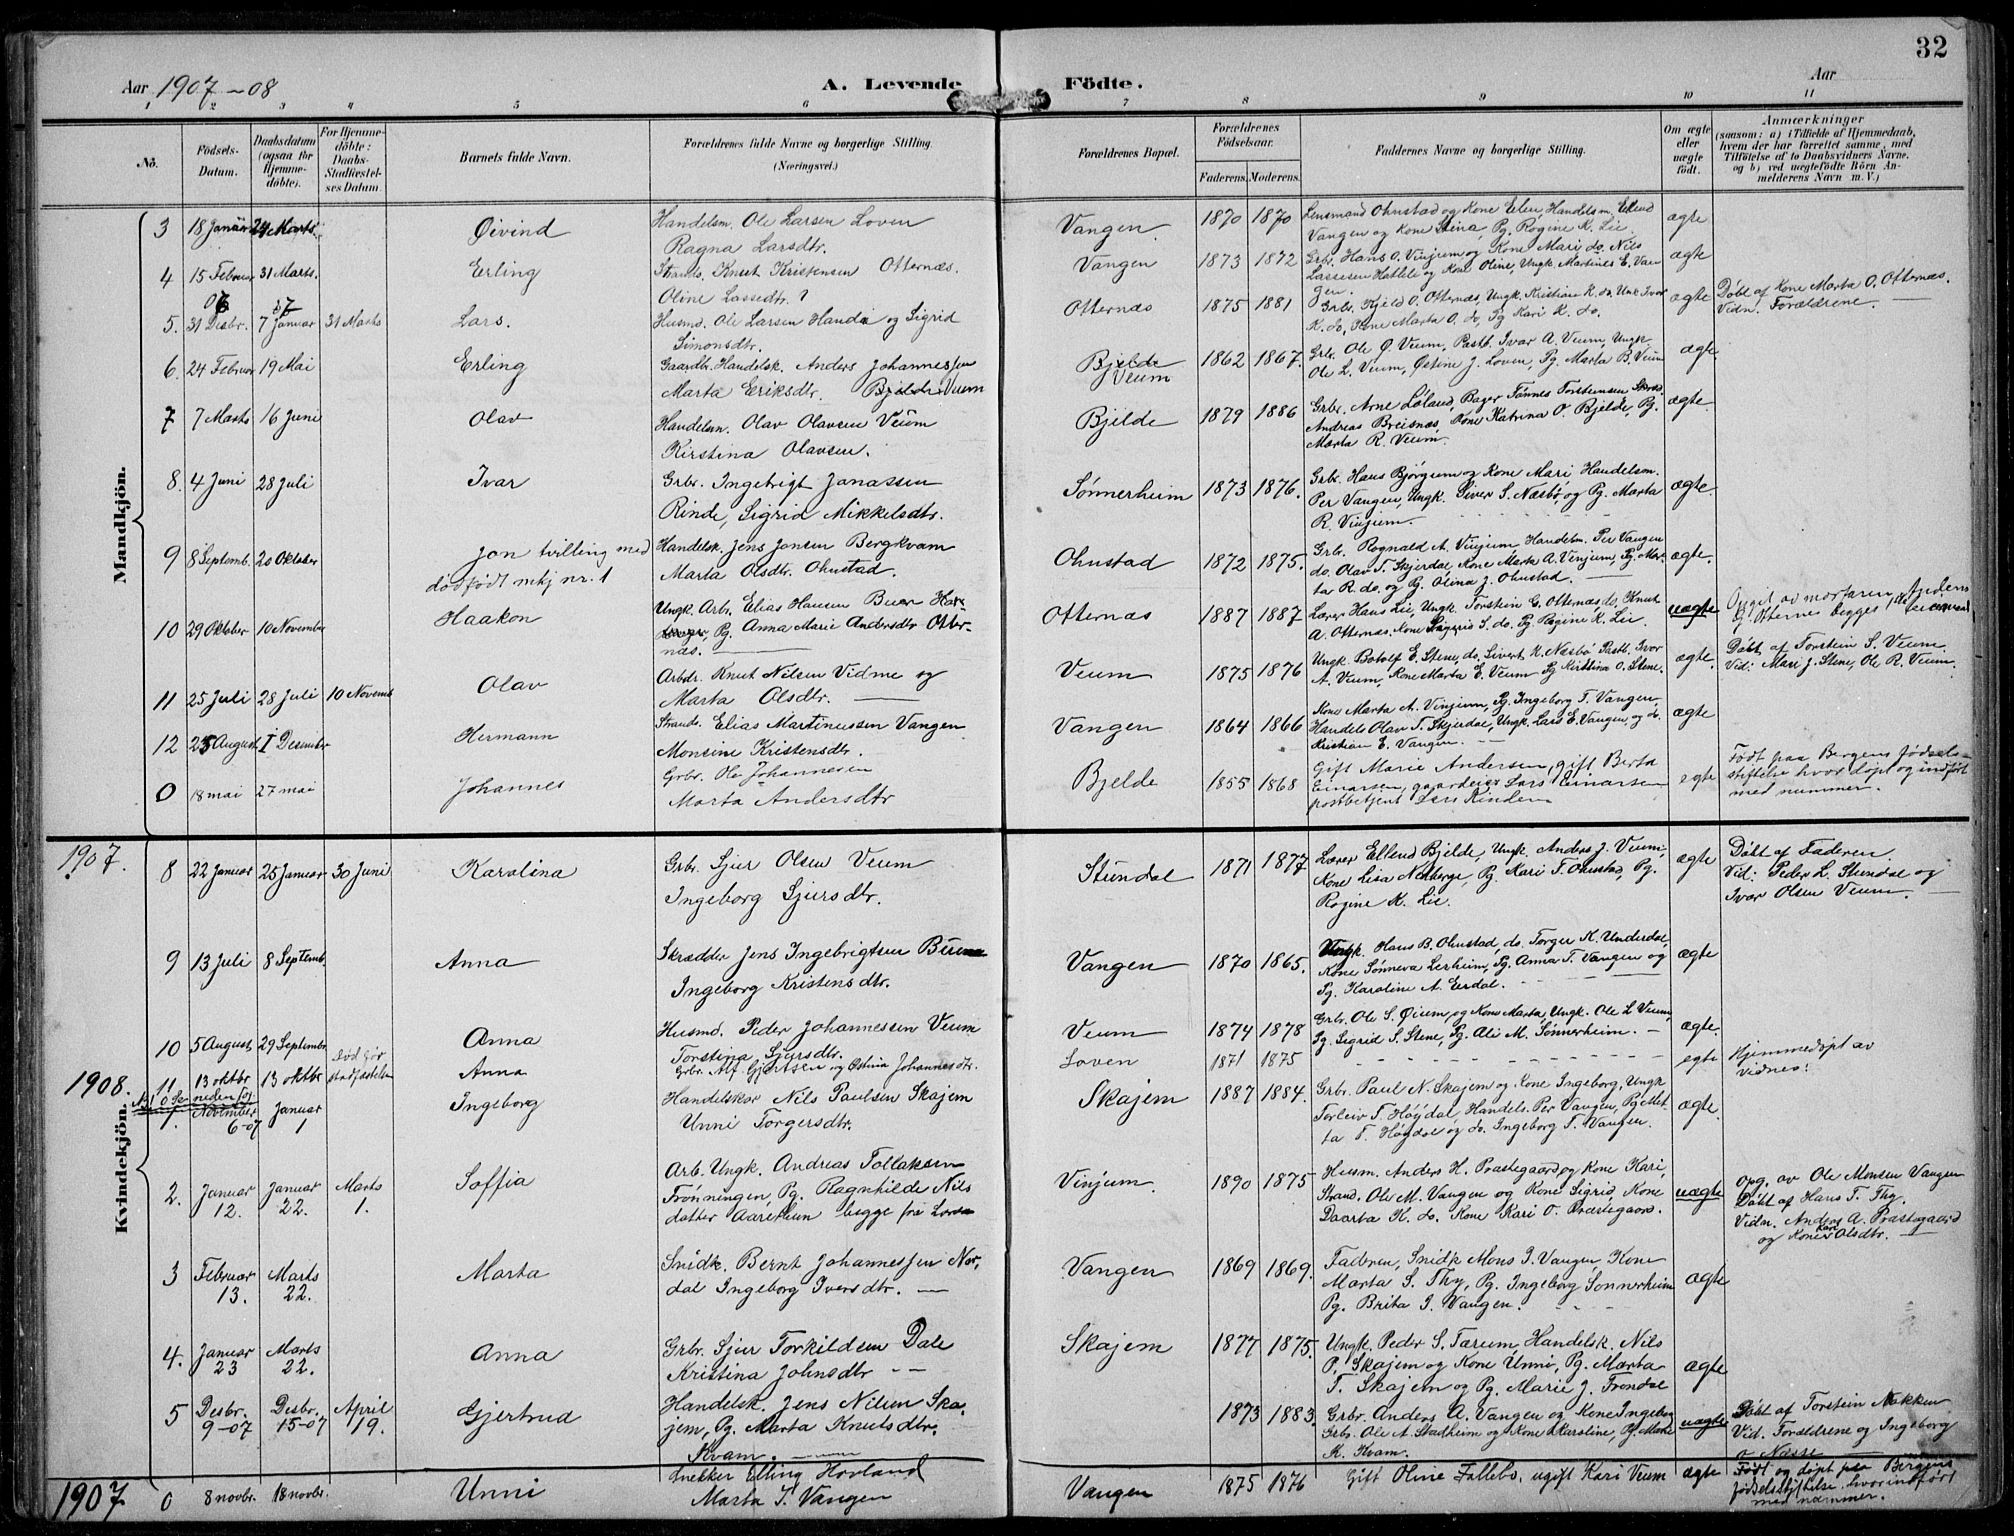 32
Aar 1907-08
A. Levende Födte.
Aar
1 2 3 4 5 6 7 8 9 10 11
No.
Födsels-Datum.
Daabsdatum (ogsaa for Hjemme-döbte).
For Hjemme-döbte: Daabs-Stadfæstelses Datum.
Barnets fulde Navn.
Forældrenes fulde Navne og borgerlige Stilling.
(Næringsvei.)
Forældrenes Bopæl.
Forældrenes Födselsaar.
Faderens. Moderens.
Faddernes Navne og borgerlige Stilling.
Om ægte eller uægte födt.
Anmærkninger
(saasom: a) i Tilfælde af Hjemmedaab, hvem der har forrettet samme, med Tilföielse af to Daabsvidners Navne, og b) ved uægtefödte Börn Anmelderens Navn m. V.)
Mandkjön.
3 18 Januar 24 Marts. Øivind Handelsm. Ole Larsen Loven
Ragna Larsdtr.
Vangen. 1870 1870 Lensmand Ohnstad og Kone Elen, Handelsm. Ellend
Vangen og Kone Stina, Pg. Rogine K. Lie. ægte
4 15 Februar 31 Marts. Erling Strands. Knut Kristensen Otternæs.
Oline Lassedtr.
Vangen 1873 1872 Grbr. Hans O. Vinjum og Kone Mari do. Nils
Lassesen Hatlele og Kone Oline, Ungk. Martines E. Vangen. ægte
5. 31 Desbr. 06 7 Januar 07 31 Marts Lars. Husmd. Ole Larsen Handa og Sigrid
Simonsdtr.
Otternæs 1875 1881 Grbr. Kjeld O. Otternæs, Ungk. Kristian K. do, Unk. Ivar
K. do, Kone Marta O. do, Pg Kari K. do. ægte
Døbt af Kone Marta O. Otternæs.
Vidn. Forældrene.
6. 24 Februar 19 Mai Erling Gaardbr. Handelsk. Anders Johannessen
Marta Eriksdtr. Bjelde Veum
Bjelde
Veum
1862 1867. Grbr. Ole Ø. Veum, Postb. Ivar A. Veum, Ungk.
Ole L. Veum, Østine J. Loven, Pg. Marta B. Veum ægte
7 7 Marts 16 Juni Olav Handelsm. Olav Olavsen Veum
Kirstina Olavsen.
Bjelde 1879 1886 Grbr. Arne Løland, Bager Tønnes Torsteinsen
Andreas Breisnæs, Kone Katrina O. Bjelde, Pg.
Marta R. Veum. ægte.
8. 4 Juni 28 Juli Ivar Grbr. Ingebrigt Janassen
Rinde, Sigrid Mikkelsdtr.
Sønnerheim 1873 1876. Grbr. Hans Bjørgum og Kone Mari Handelsm.
Per Vangen, Ungk. Siver S. Næsbø og Pg. Marta
R. Vinjum. ægte.
9 8 Septemb. 20 Oktober Jon tvilling med
dödfødt mkj nr. 1
Handelsk. Jens Jonsen Bergkvam
Marta Olsdtr. Ohnstad.
Ohnstad 1872 1875. Grbr. Rognald A. Vinjum, Handelsm. Per Vangen
do. Olav T. Skjerdal, Kone Marta A. Vinjum, Pg. Marta
R. do. og Pg. Olina J. Ohnstad. ægte.
10 29 Oktober 10 November Haakon Ungk. Arb. Elias Hansen Buer
Pg. Anna Marie Andersdtr Otternæs.
Otternæs 1887 1887 Lærer Hans Lie, Ungk. Torstein G. Otternæs do, Knut
A. Otternæs, Kone Sigrid S. do. Pg. Rogine K. Lie. uægte
Opgit av morfaren Anders
G. Otternes begges 1ste
11 25 Juli 28 Juli 10 Novemb Olav Arbdr. Knut Nilsen Vidme og
Marta Olsdtr.
Veum 1875 1876 Ungk. Botolf E. Stene, do, Sivert K. Næsbø Pastb. Ivar
A. Veum, Kone Marta E. Veum Pg Kristina O. Stene. ægte.
Døbt af Torstein S. Veum.
Vid: Mari J. Stene, Ole R. Veum.
12 25 August 1 Desember Hermann Strands. Elias Martinussen Vangen
Monsine Kristensdtr.
Vangen 1864 1866 Kone Marta A. Vinjum, Pg. Ingeborg T. Vangen,
Handels Olav T. Skjerdal, Ungk. Lars E. Vangen, og do.
Kristian E. Vangen. ægte
0 18 mai 27 mai Johannes Grbr. Ole Johannesen
Marta Andersdtr
Bjelde 1855 1868 Gift Marie Andersen, gift Berta
Einarsen, gaardeier Lars Einarsen
postbetjent Lars Rinden egte
Født paa Bergens fødsels-
stiftelse hvor døpt og indført
med nummer.
1907.
Kvindekjön.
8 22 Januar 25 Januar 30 Juni Karolina Grbr. Sjur Olsen Veum
Ingeborg Sjursdtr.
Stundal 1871 1877 Lærer Ellend Bjelde, Ungk. Anders J. Veum,
Kone Lisa Næsberge, Pg. Kari T. Ohnstad, Pg.
Rogine K. Lie. ægte
Døbt af Faderen.
Vid: Peder L. Stundal og
Ivar Olsen Veum.
9 13 Juli 8 Septemb. Anna Skrædder Jens Ingebrigtsen
Ingeborg Kristensdtr.
Vangen 1870 1865. Ungk. Hans B. Ohnstad, do. Torger K. Underdal,
Kone Sønneva Lerheim, Pg. Anna T. Vangen og
Pg. Karoline A. Erdal. ægte
10 5 August 29 Septembr. Anna Husmd. Peder Johannessen Veum
Torstina Sjursdtr.
Veum 1874 1878 Grbr. Ole S. Øium og Kone Marta, Ungk. Ole L Veum,
Pg. Sigrid S. Stene, Pg. Ali M. Sønnerheim. ægte.
11 13 oktbr 13 oktbr død før
stadfæstelsen
Anna Grbr. Alf Gjertsen og Østina Johannesdtr.
Loven 1871 1875 egte Hjemmedøpt av
vidnes:
1908.
Nr. 0 Se neden for
1. November 6-07 Januar 1 Ingeborg Handelskar Nils Paulsen Skajem
Unni Torgersdtr.
Skajem 1887 1884. Grbr. Paul N. Skajem og Kone Ingeborg, Ungk
Torleiv T. Høydal, Handels. Per Vangen, Pg Metta
T. Høydal og do. Ingeborg T. Vangen. ægte.
2. Januar 12. Januar 22. Marts 1. Soffia Arb. Ungk. Andreas Tollaksen
Frønningen, Pg. Ragnhilde Nils
datter Aarethun begge fra
Vinjum. 1890 1875 Husm. Anders H. Præstegaard og Kone Kari,
Strand. Ole M. Vangen og Kone Sigrid, Kone
Daarta K. do. Kone Kari O. Præstegaard. uægte
opg. av Ole Monsen Vangen
Døbt af Hans T. Thy.
Vidn. Anders A. Præstegaard
og Kone Kari Olsdtr.
3 Februar 13. Marts 22. Marta Snidk. Bernt Johannessen Nordal
Ingeborg Iversdtr.
Vangen 1869 1869. Faderen, Snidk Mons J. Vangen Kone
Marta S. Thy, Pg. Ingeborg Sønnerheim
Pg. Brita J. Vangen. ægte
4. Januar 23 Marts 22. Anna Grbr. Sjur Torkildsen Dale
Kristina Johnsdtr
Skajem 1877 1875. Ungk. Peder S. Tærum, Handelsk. Nils
P. Skajem og Kone Unni, Pg. Marta
T. Skajem og Pg. Marie J. Frondal ægte
5 Desbr. 9-07 Desbr. 15-07 April 19. Gjertrud Handelsk. Jens Nilsen Skajem,
Pg. Marta Knutsdtr.
Kvam.
1873 1883. Grbr. Anders A. Vangen og Kone Ingeborg
Grbr. Ole A. Stadheim og Kone Karoline, Pg. Mari
K. Kvam. uægte
Døbt af Torstein Nakken
Vid. Forældrene og Ingeborg
O. Næsse
1907 0 8 novbr. 18 novbr. Unni Snekker Elling Hovland
Marta T. Vangen
Vangen 1875 1876 Gift Oline Fallebs, ugift Kari Veum ægte
Født og døpt paa Bergens
fødselsstiftelse, hvor indført
med nummer.